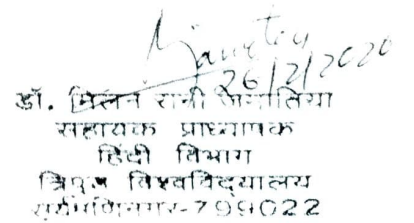 26/2/2020
डॉ. मिलन रानी जमातिया
सहायक प्राध्यापक
हिंदी विभाग
त्रिपुरा विश्वविद्यालय
सूर्यमणिनगर-799022